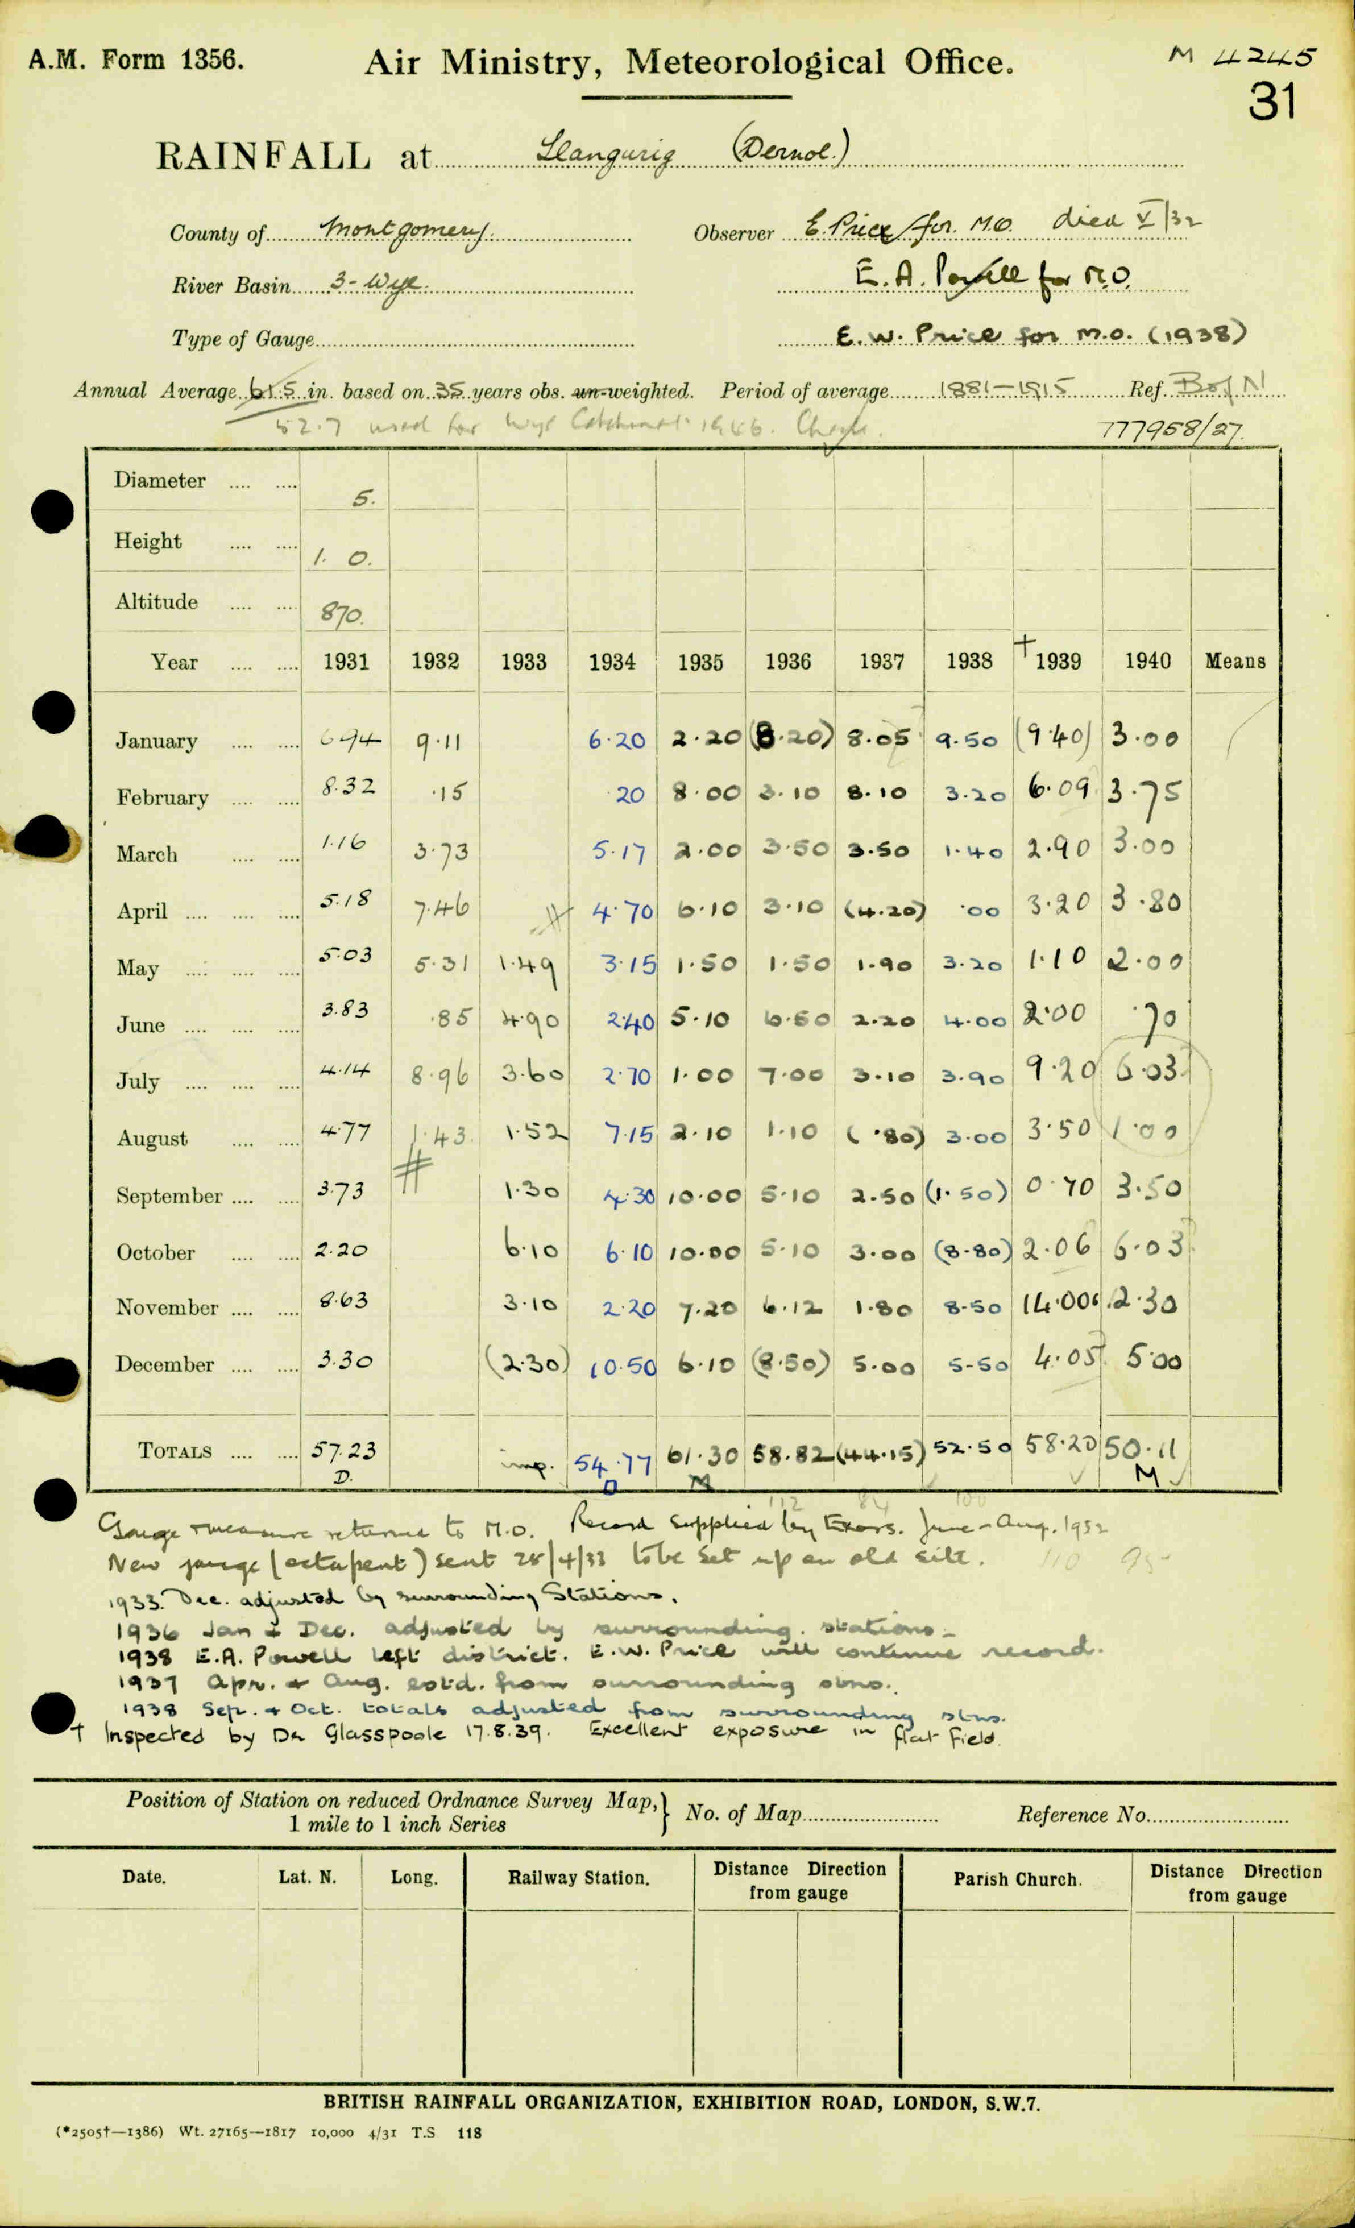 A.M. Form 1356. Air Ministry, Meteorological Office. M 4245
31
RAINFALL at Llangurig (Dernol.)
County of Montgomery. Observer E. Price for M.O. died V/32
River Basin 3-Wye. E. A. Powell for M.O.
Type of Gauge E. W. Price for M.O. (1938)
Annual Average 61.5 in. based on 35 years obs. un-weighted. Period of average 1881–1915 Ref. B of N
52.7 used for Wye Catchment 1966. Check. 777958/27.
Diameter 5.
Height 1. 0.
Altitude 870.
Year 1931 1932 1933 1934 1935 1936 1937 1938 † 1939 1940 Means
January 6.94 9.11 6.20 2.20 (8.20) 8.05 9.50 (9.40) 3.00
February 8.32 .15 .20 8.00 3.10 8.10 3.20 6.09 3.75
March 1.16 3.73 5.17 2.00 3.50 3.50 1.40 2.90 3.00
April 5.18 7.46 4.70 6.10 3.10 (4.20) .00 3.20 3.80
May 5.03 5.31 1.49 3.15 1.50 1.50 1.90 3.20 1.10 2.00
June 3.83 .85 4.90 2.40 5.10 6.50 2.20 4.00 2.00 .70
July 4.14 8.96 3.60 2.70 1.00 7.00 3.10 3.90 9.20 6.03
August 4.77 1.43 1.52 7.15 2.10 1.10 (.80) 3.00 3.50 1.00
September 3.73 1.30 4.30 10.00 5.10 2.50 (1.50) 0.70 3.50
October 2.20 6.10 6.10 10.00 5.10 3.00 (8.80) 2.06 6.03
November 8.63 3.10 2.20 7.20 6.12 1.80 8.50 14.00 12.30
December 3.30 (2.30) 10.50 6.10 (8.50) 5.00 5.50 4.05 5.00
TOTALS 57.23 imp. 54.77 61.30 58.82 (44.15) 52.50 58.20 50.11
D. D M M
112 84 100
Gauge & measure returned to M.O. Record supplied by Exors. June – Aug. 1932
New gauge (octapent) sent 28/4/33 to be set up on old site. 110 95
1933. Dec. adjusted by surrounding Stations.
1936 Jan & Dec. adjusted by surrounding stations.
1938 E.A. Powell left district. E.W. Price will continue record.
1937 Apr. & Aug. estd. from surrounding stns.
1938 Sep. & Oct. totals adjusted from surrounding stns.
† Inspected by Dr Glasspoole 17.8.39. Excellent exposure in flat field.
Position of Station on reduced Ordnance Survey Map, 1 mile to 1 inch Series } No. of Map Reference No.
Date. Lat. N. Long. Railway Station. Distance Direction from gauge Parish Church. Distance Direction from gauge
BRITISH RAINFALL ORGANIZATION, EXHIBITION ROAD, LONDON, S.W.7.
(*2505†—1386) Wt. 27165—1817 10,000 4/31 T.S 118